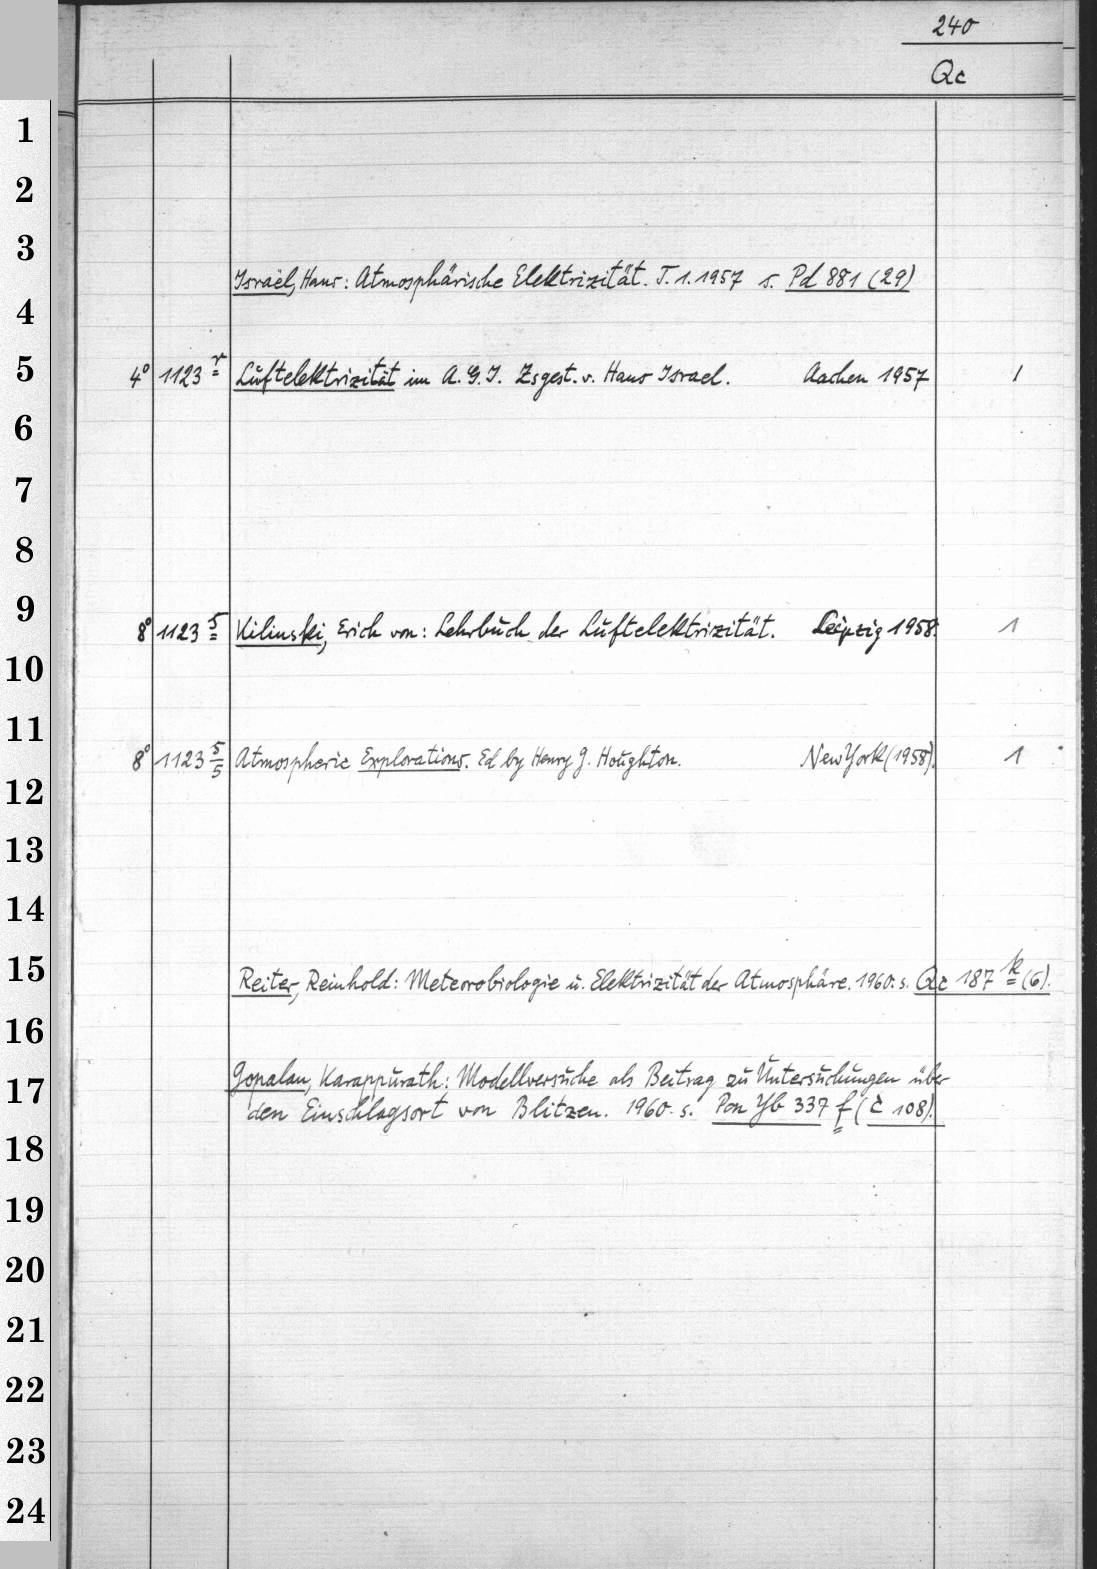 240
Qc
1
2
3
Israël, Hans: Atmosphärische Elektrizität. T. 1. 1957 s. Pd 881 (29)
4
5 4° 1123 r Luftelektrizität im A. G. J. Zsgest. v. Hans Israel. Aachen 1957 1
6
7
8
9 8° 1123 5 Kilinski, Erich von: Lehrbuch der Luftelektrizität. Leipzig 1958. 1
10
11 8° 1123 5/5 Atmospheric Explorations. Ed by Henry G. Houghton. New York (1958). 1
12
13
14
15 Reiter, Reinhold: Meteorobiologie u. Elektrizität der Atmosphäre. 1960. s. Qc 187 k (6).
16
17 Gopalan, Karappurath: Modellversuche als Beitrag zu Untersuchungen über
den Einschlagsort von Blitzen. 1960. s. Pon Yb 337 f (c 108).
18
19
20
21
22
23
24